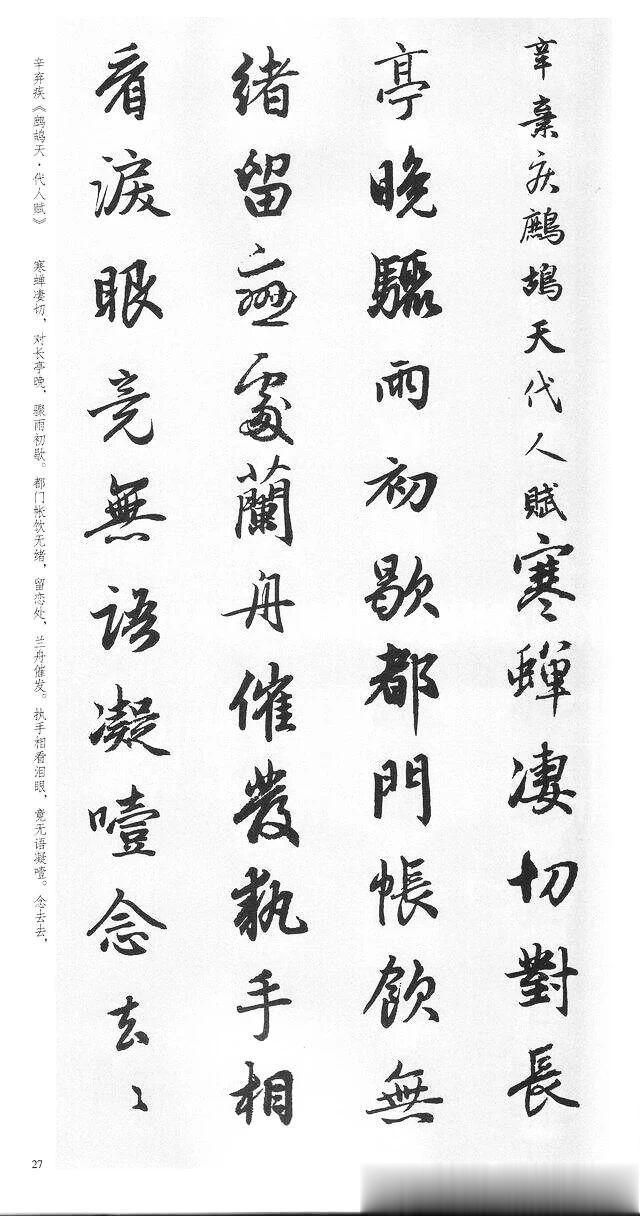 辛棄疾鷓鴣天代人賦寒蟬凄切對長
亭晚驟雨初歇都門帳飲無
緒留戀處蘭舟催發執手相
看淚眼竟無語凝噎念去〻
辛弃疾《鹧鸪天·代人赋》　寒蝉凄切，对长亭晚，骤雨初歇。都门帐饮无绪，留恋处，兰舟催发。执手相看泪眼，竟无语凝噎。念去去，
27